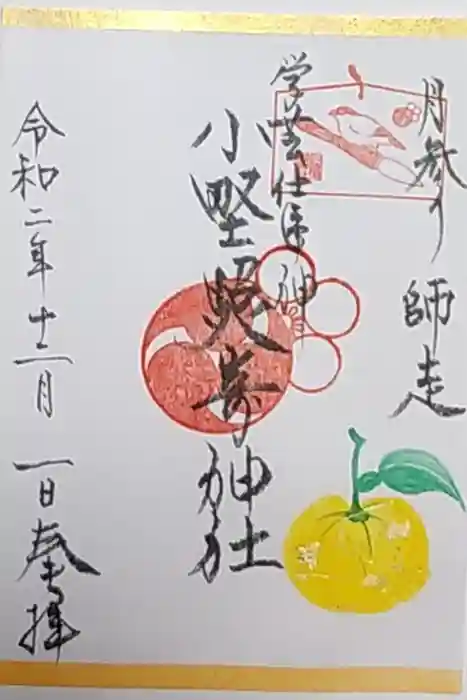 月参り 師走
学芸仕事神
小野照崎神社
令和二年十二月一日奉拝